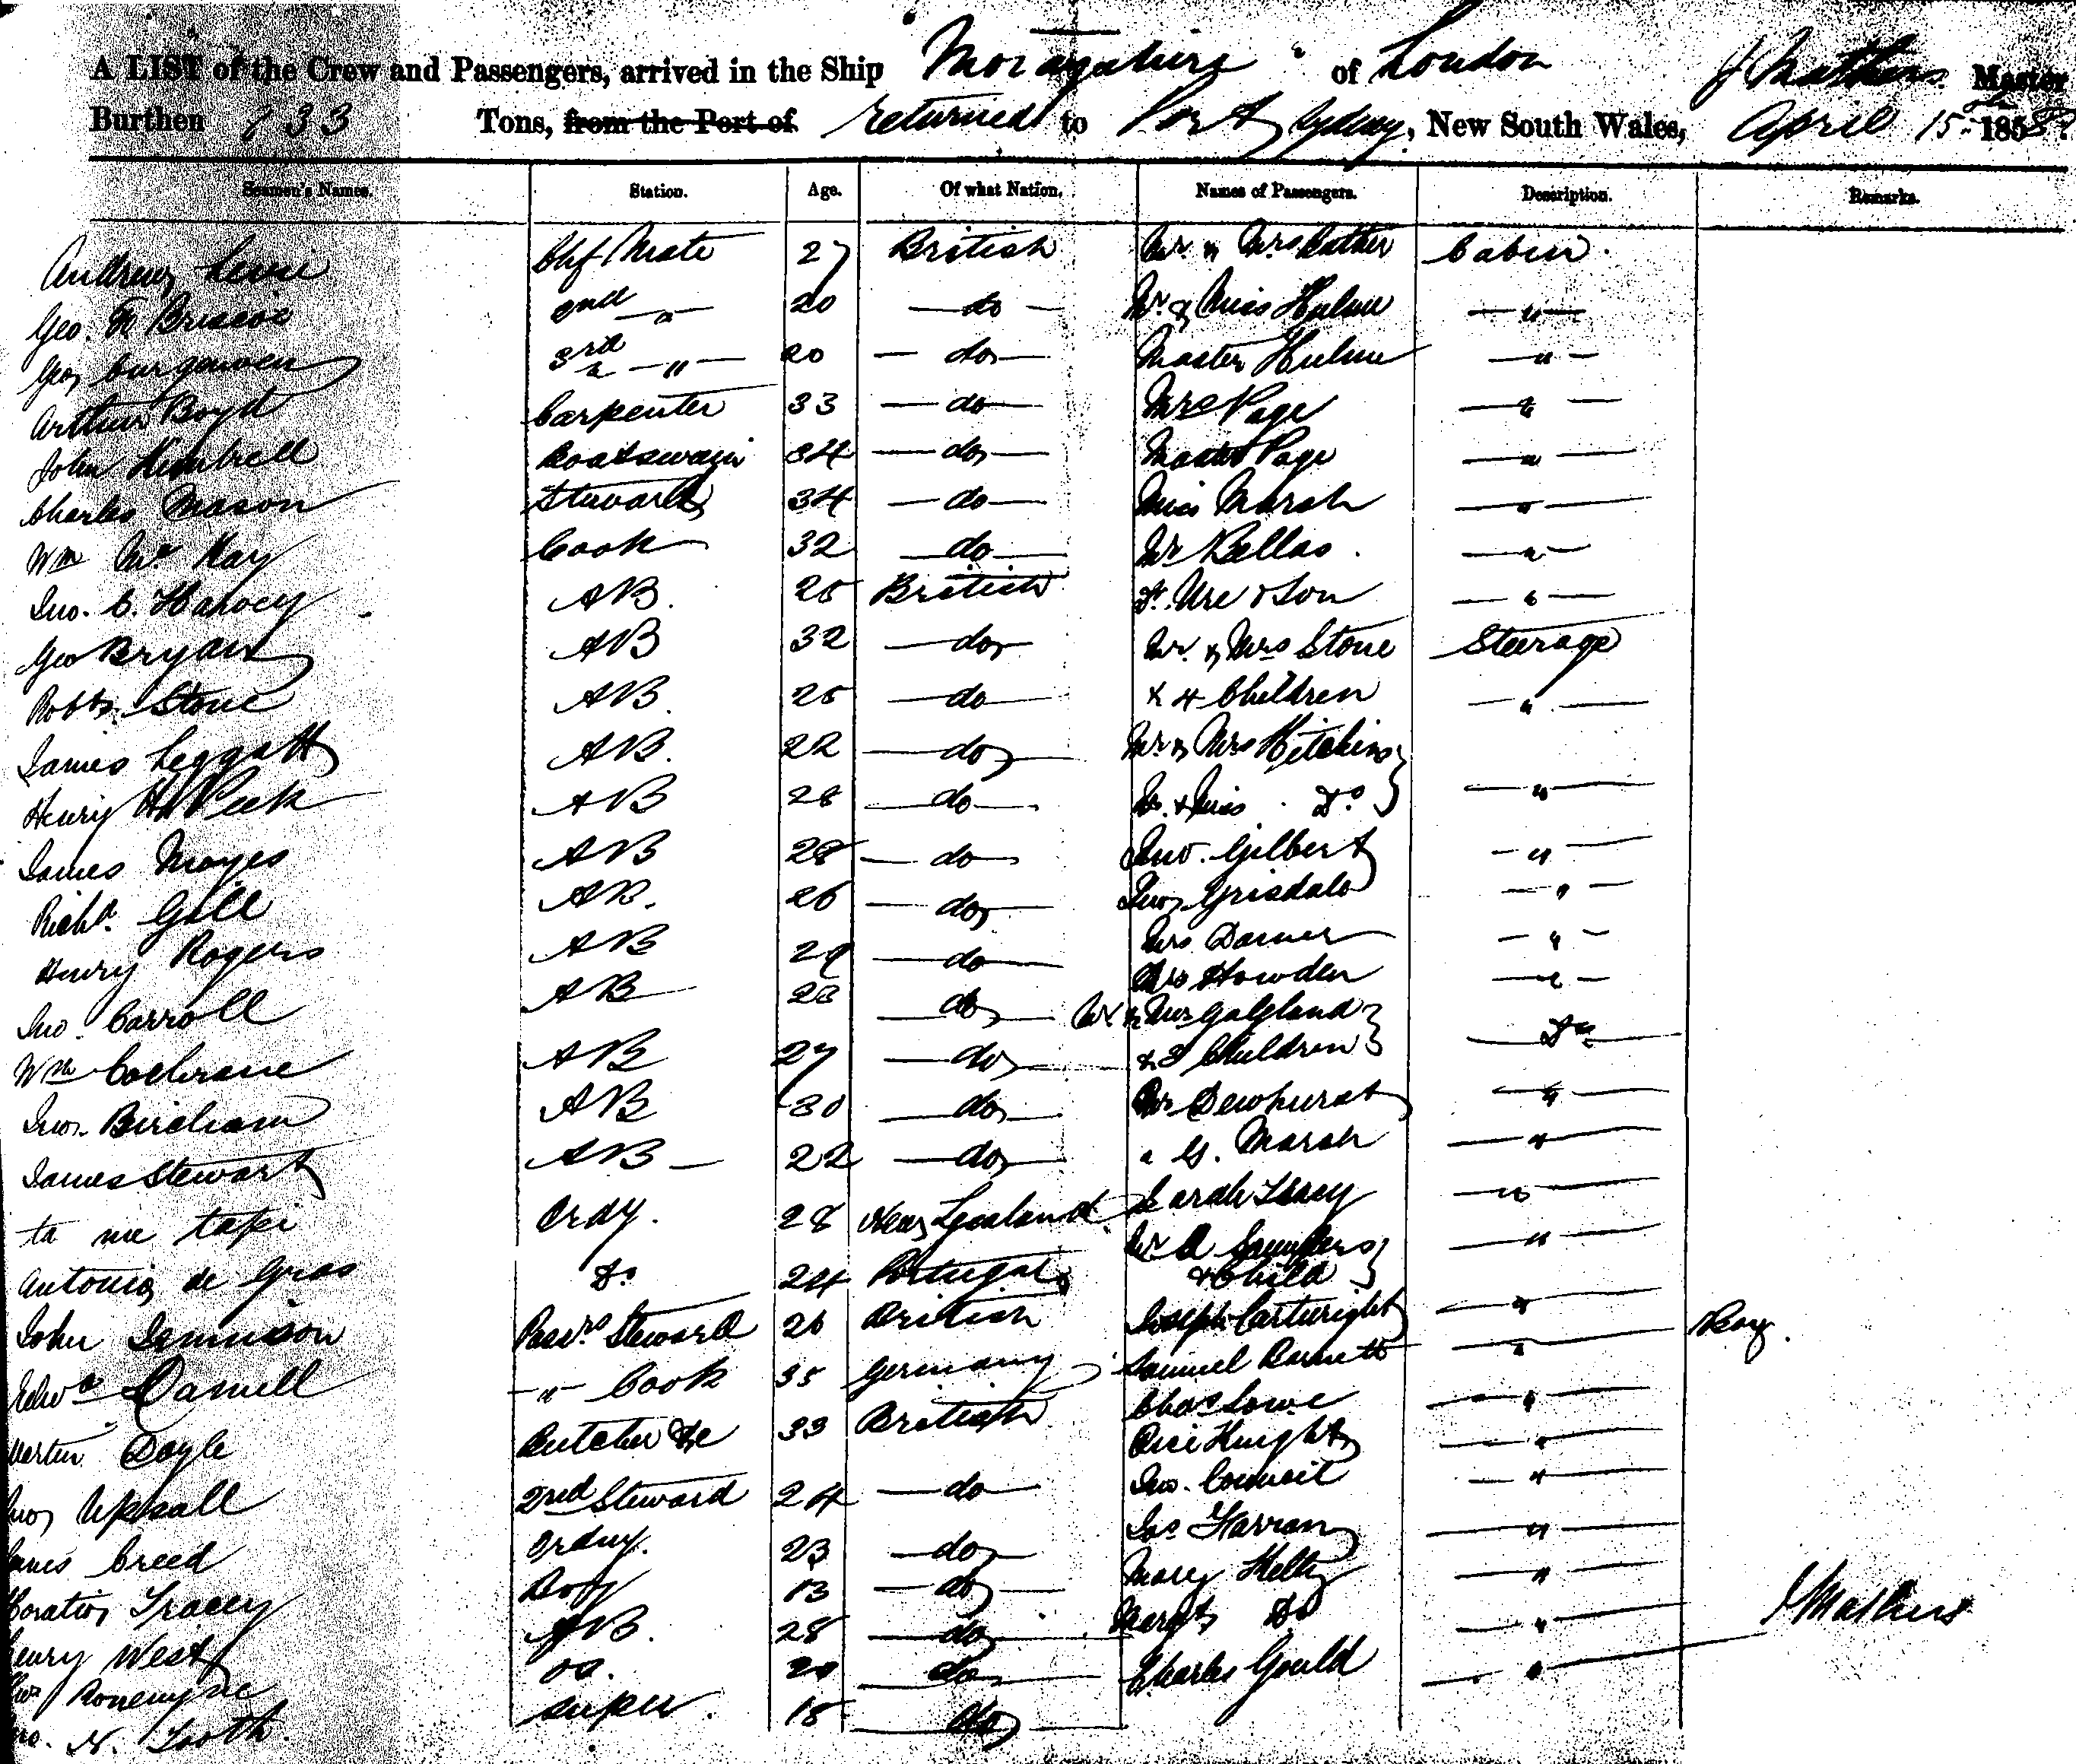 A LIST of the Crew and Passengers, arrived in the Ship "Morayshire" of London J Mathers Master
Burthen 833 Tons, from the Port of returned to Port Sydney, New South Wales, April 15th 1858.
Seamen's Names. Station. Age. Of what Nation. Names of Passengers. Description. Remarks.
Andrew Chf Mate 27 British Mr & Mrs Cabin
Geo. Briscoe 2nd " 20 do Mr & Miss Hulme "
Geo 3rd " 20 do Master Hulme "
Arthur Boyd Carpenter 33 do Mrs Page "
John Kimbrell Boatswain 34 do Master Page "
Charles Mason Steward 34 do Miss Marsh "
Wm Mc Kay Cook 32 do Mr Bellas "
Jno. C. Harvey AB. 25 British Dr. Ure & Son "
Geo Bryan AB 32 do Mr. & Mrs Stone Steerage
Robt Stone AB. 25 do & 4 Children "
James Leggatt AB. 22 do Mr & Mrs Hitchins
Henry Peek AB 28 do Mr. & Miss Do "
James Moyes AB 28 do Jno. Gilbert "
Richd. Gill AB. 26 do Jno Grisdale "
Henry Rogers AB 29 do Mrs Darner "
Jno. Carroll AB do Mrs Howden "
Wm Cochrane AB 27 do Mr & Mrs & Children Do
Jno. Bircham AB 30 do Mr Dewhurst "
James Stewart AB 22 do " G. Marsh "
ta me tapi Ordy. 28 New Zealand Sarah Tracy "
Antonio de Gras Do 24 Portugal Mr A Saunders & Child "
John Dennison Passrs Steward 26 British Joseph Cartwright "
Edwd Daniell " Cook 35 Germany Samuel Barnett " Boy.
Martin Doyle Butcher &c 33 British Chas Lowe "
Rice Knight "
Jno Upsall 2nd Steward 24 do Jno. Council "
James Creed Ordny. 23 do Jas Harran "
Horatio Tracey Boy 13 do Mary Kelly "
Henry West AB. 28 do Margt Do "
do Charles Gould " J Mathers
N. Tooth. 18 do